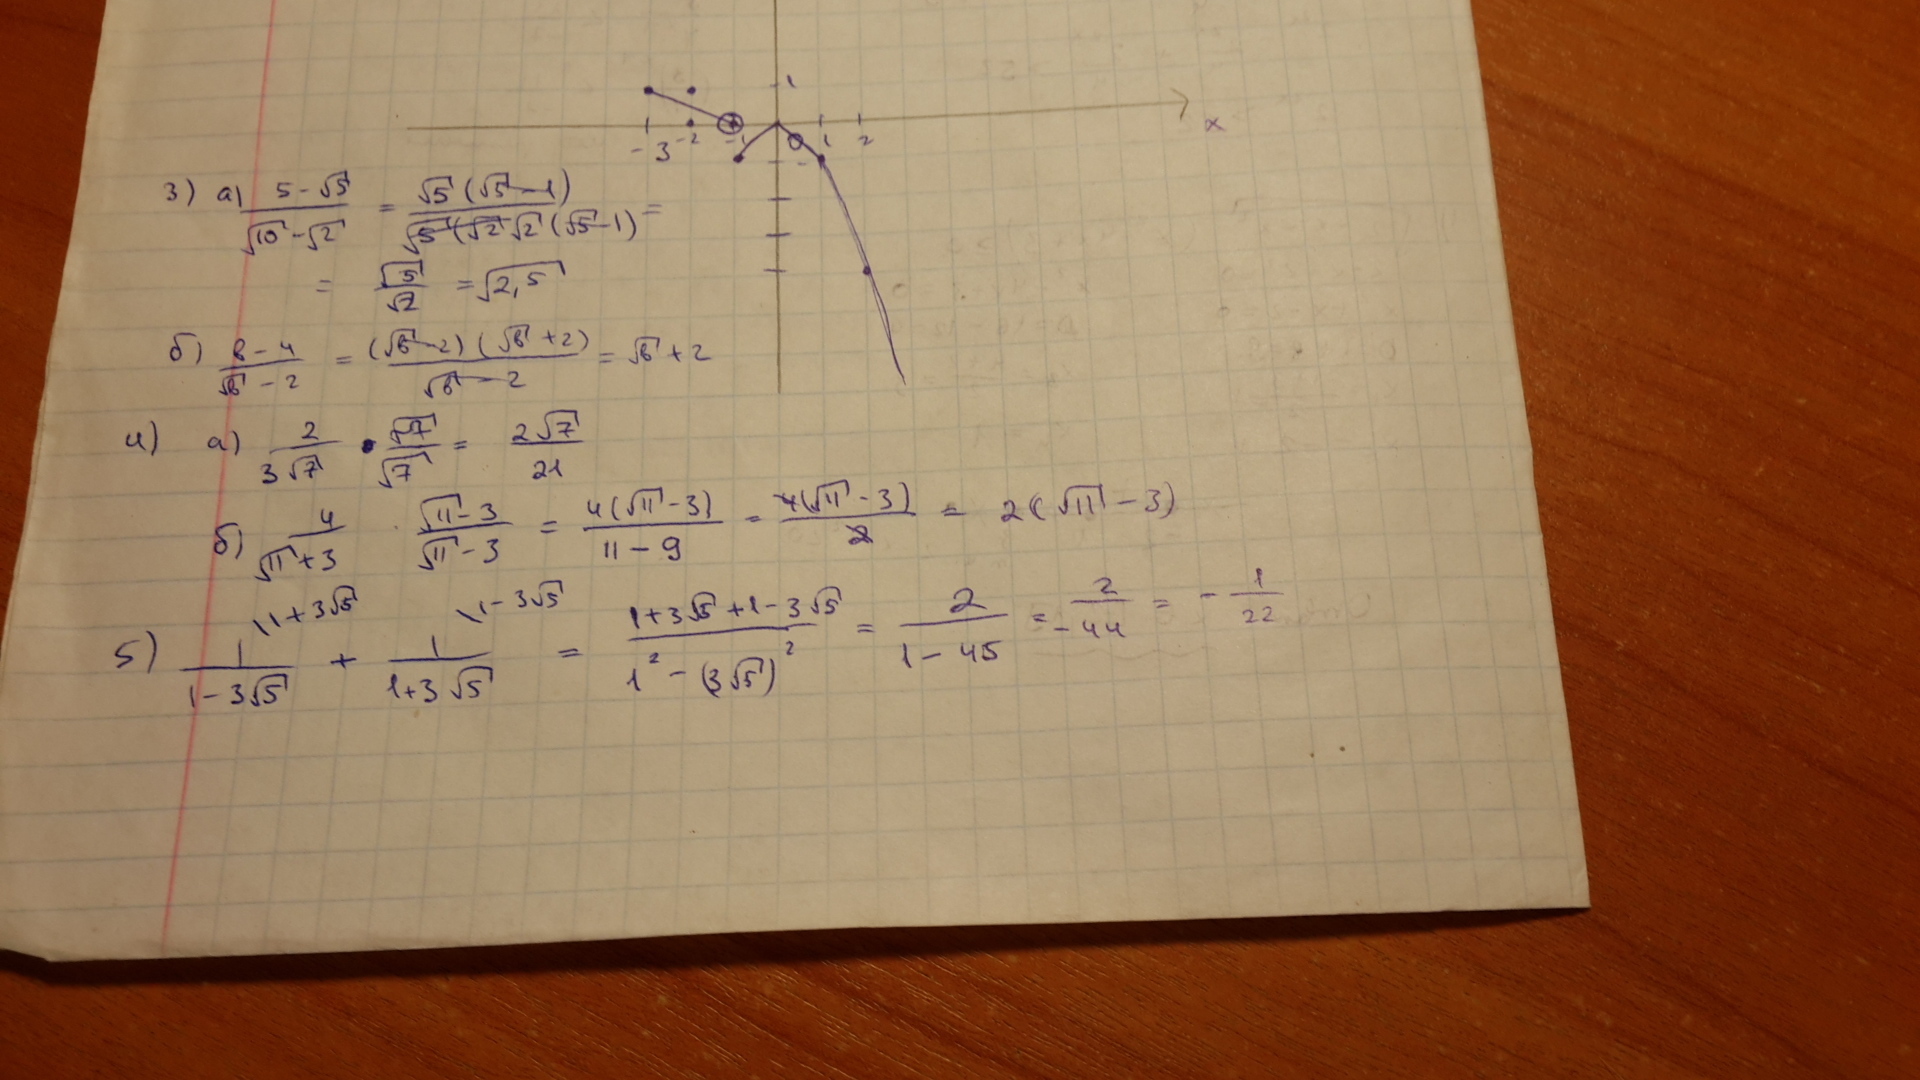 -1
x
-3 -2 -1 0 1 2
3) а) (5-√5)/(√10-√2) = (√5(√5-1))/(√2(√5-1)) =
= √5/√2 = √2,5
б) (в-4)/(√в-2) = ((√в-2)(√в+2))/(√в-2) = √в+2
4) а) 2/(3√7) · √7/√7 = 2√7/21
б) 4/(√11+3) · (√11-3)/(√11-3) = 4(√11-3)/(11-9) = 4(√11-3)/2 = 2(√11-3)
5) 1\1+3√5/(1-3√5) + 1\1-3√5/(1+3√5) = (1+3√5+1-3√5)/(1²-(3√5)²) = 2/(1-45) = 2/-44 = -1/22